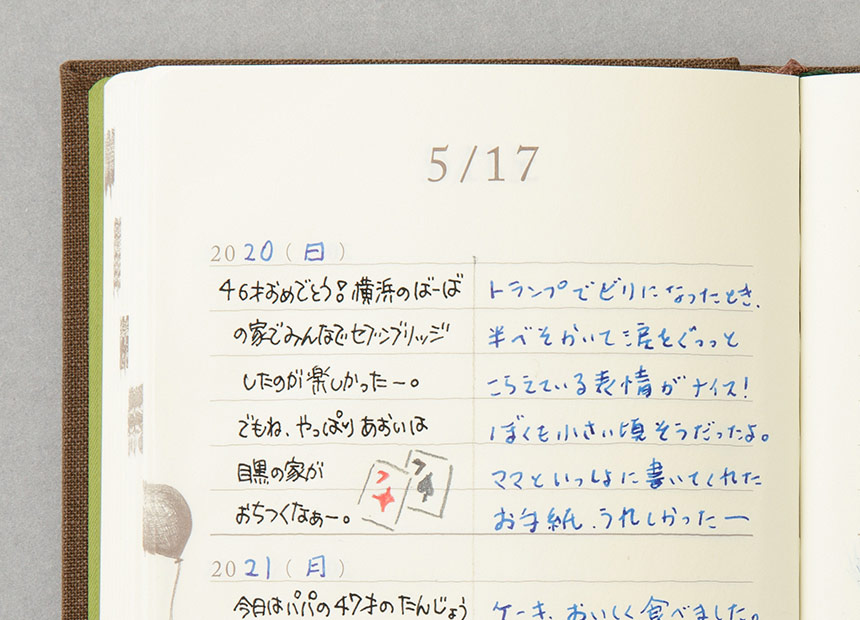 5/17
2020(日)
46才おめでとう!横浜のばーば
の家でみんなでセブンブリッジ
したのが楽しかったー。
でもね、やっぱりあおいは
目黒の家が
おちつくなぁー。
7
7
トランプでビリになったとき、
半べそかいて涙をぐっっと
こらえている表情がナイス!
ぼくも小さい頃そうだったよ。
ママといっしょに書いてくれた
お手紙、うれしかったー
2021(月)
今日はパパの47才のたんじょう
ケーキ、おいしく食べました。